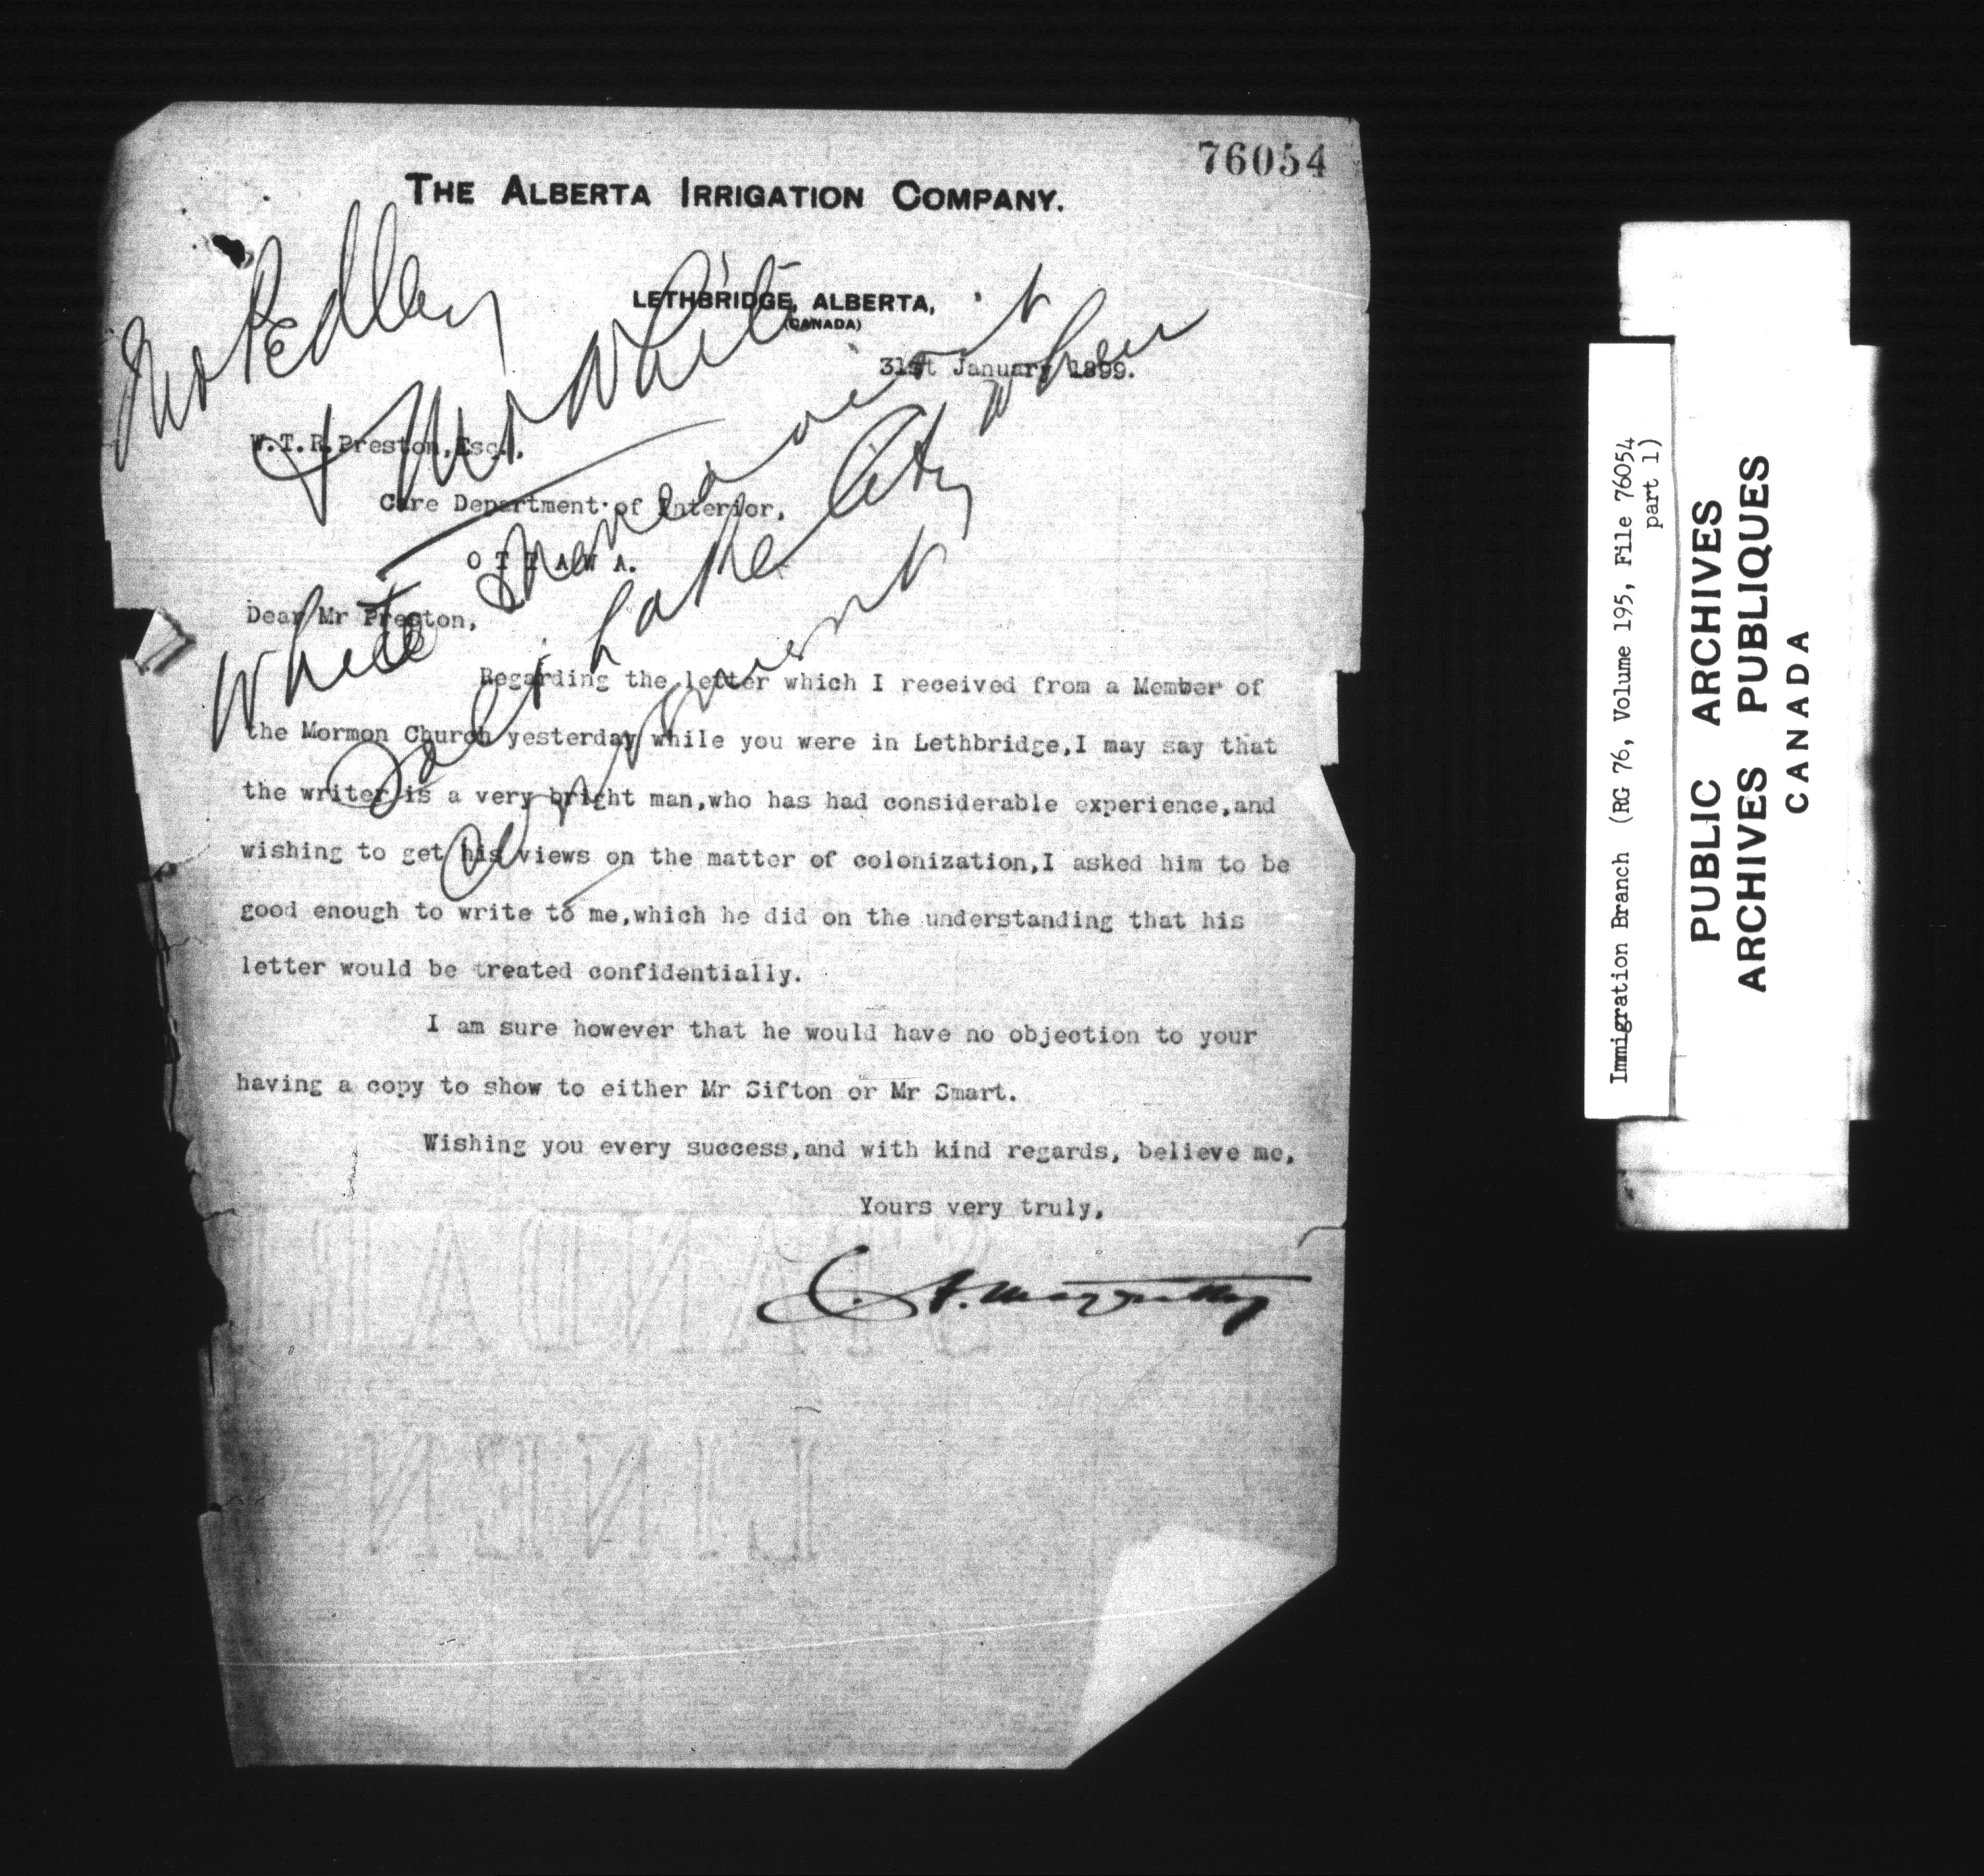 76054
THE ALBERTA IRRIGATION COMPANY.
LETHBRIDGE, ALBERTA,
(CANADA)
31st January 1899.
W.T.R.Preston,Esq.,
Care Department of Interior,
O T T A W A.
Dear Mr Preston,
Regarding the letter which I received from a Member of
the Mormon Church yesterday while you were in Lethbridge,I may say that
the writer is a very bright man,who has had considerable experience,and
wishing to get his views on the matter of colonization,I asked him to be
good enough to write to me,which he did on the understanding that his
letter would be treated confidentially.
I am sure however that he would have no objection to your
having a copy to show to either Mr Sifton or Mr Smart.
Wishing you every success,and with kind regards, believe me,
Yours very truly,
Mr Pedley
& Mr White
White
when
Salt Lake City
STANDARD
LINEN
Immigration Branch (RG 76, Volume 195, File 76054
part 1)
PUBLIC ARCHIVES
ARCHIVES PUBLIQUES
CANADA